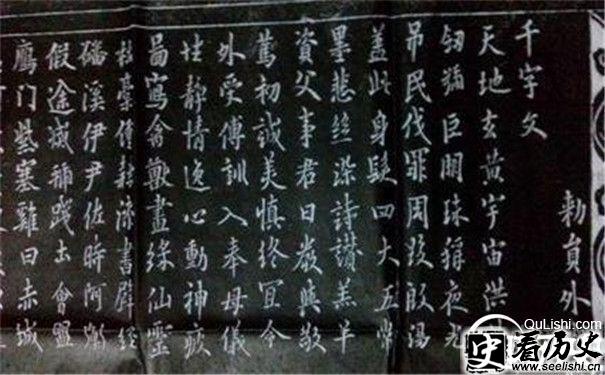 勅員外
千字文
天地玄黃宇宙洪
劒號巨闕珠稱夜光
吊民伐罪周發殷湯
盖此身髮四大五常
墨悲絲染詩讃羔羊
資父事君曰嚴與敬
篤初誠美慎終宜令
外受傅訓入奉母儀
性靜情逸心動神疲
啚寫禽獸畫綵仙靈
杜稾鍾隸漆書壁經
磻溪伊尹佐時阿衡
假途滅虢踐土會盟
鴈門紫塞雞田赤城
QuLishi.com
看历史
www.seelishi.com